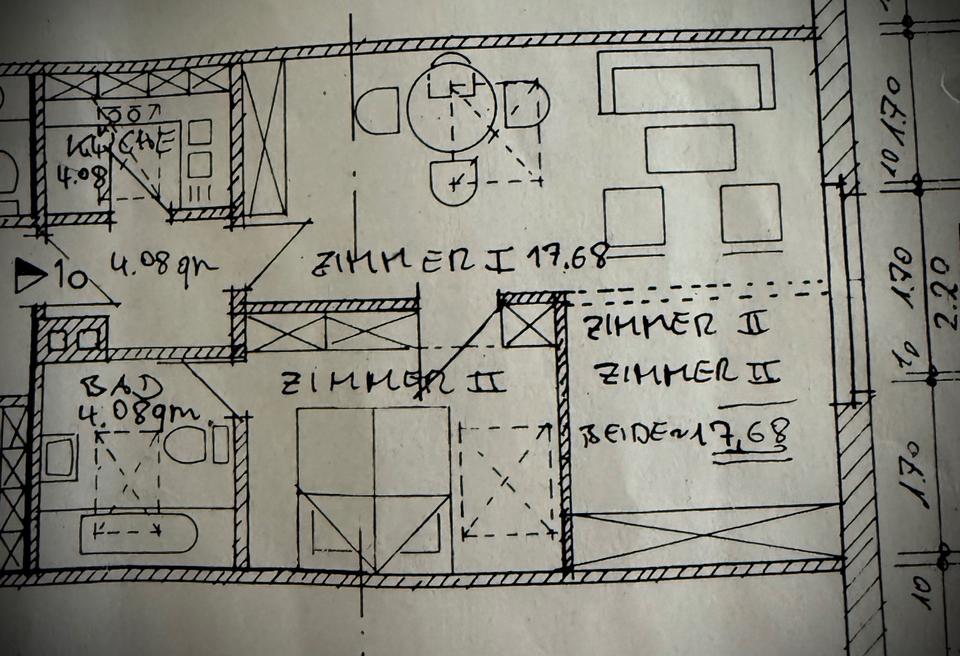 KÜCHE
4.08
10
4.08 qm
ZIMMER I 17.68
ZIMMER II
ZIMMER II
BEIDE ~ 17,68
ZIMMER II
BAD
4.08 qm.
10
1.70
10
1.70
2.20
10
1.70
10